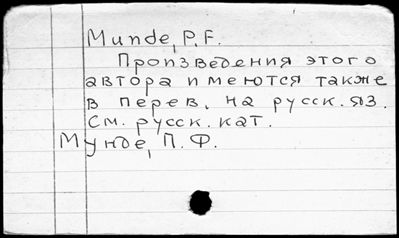 Munde, P. F.
Произведения этого
автора имеются также
в перев. на русск. яз.
См. русск. кат.
Мунде, П. Ф.